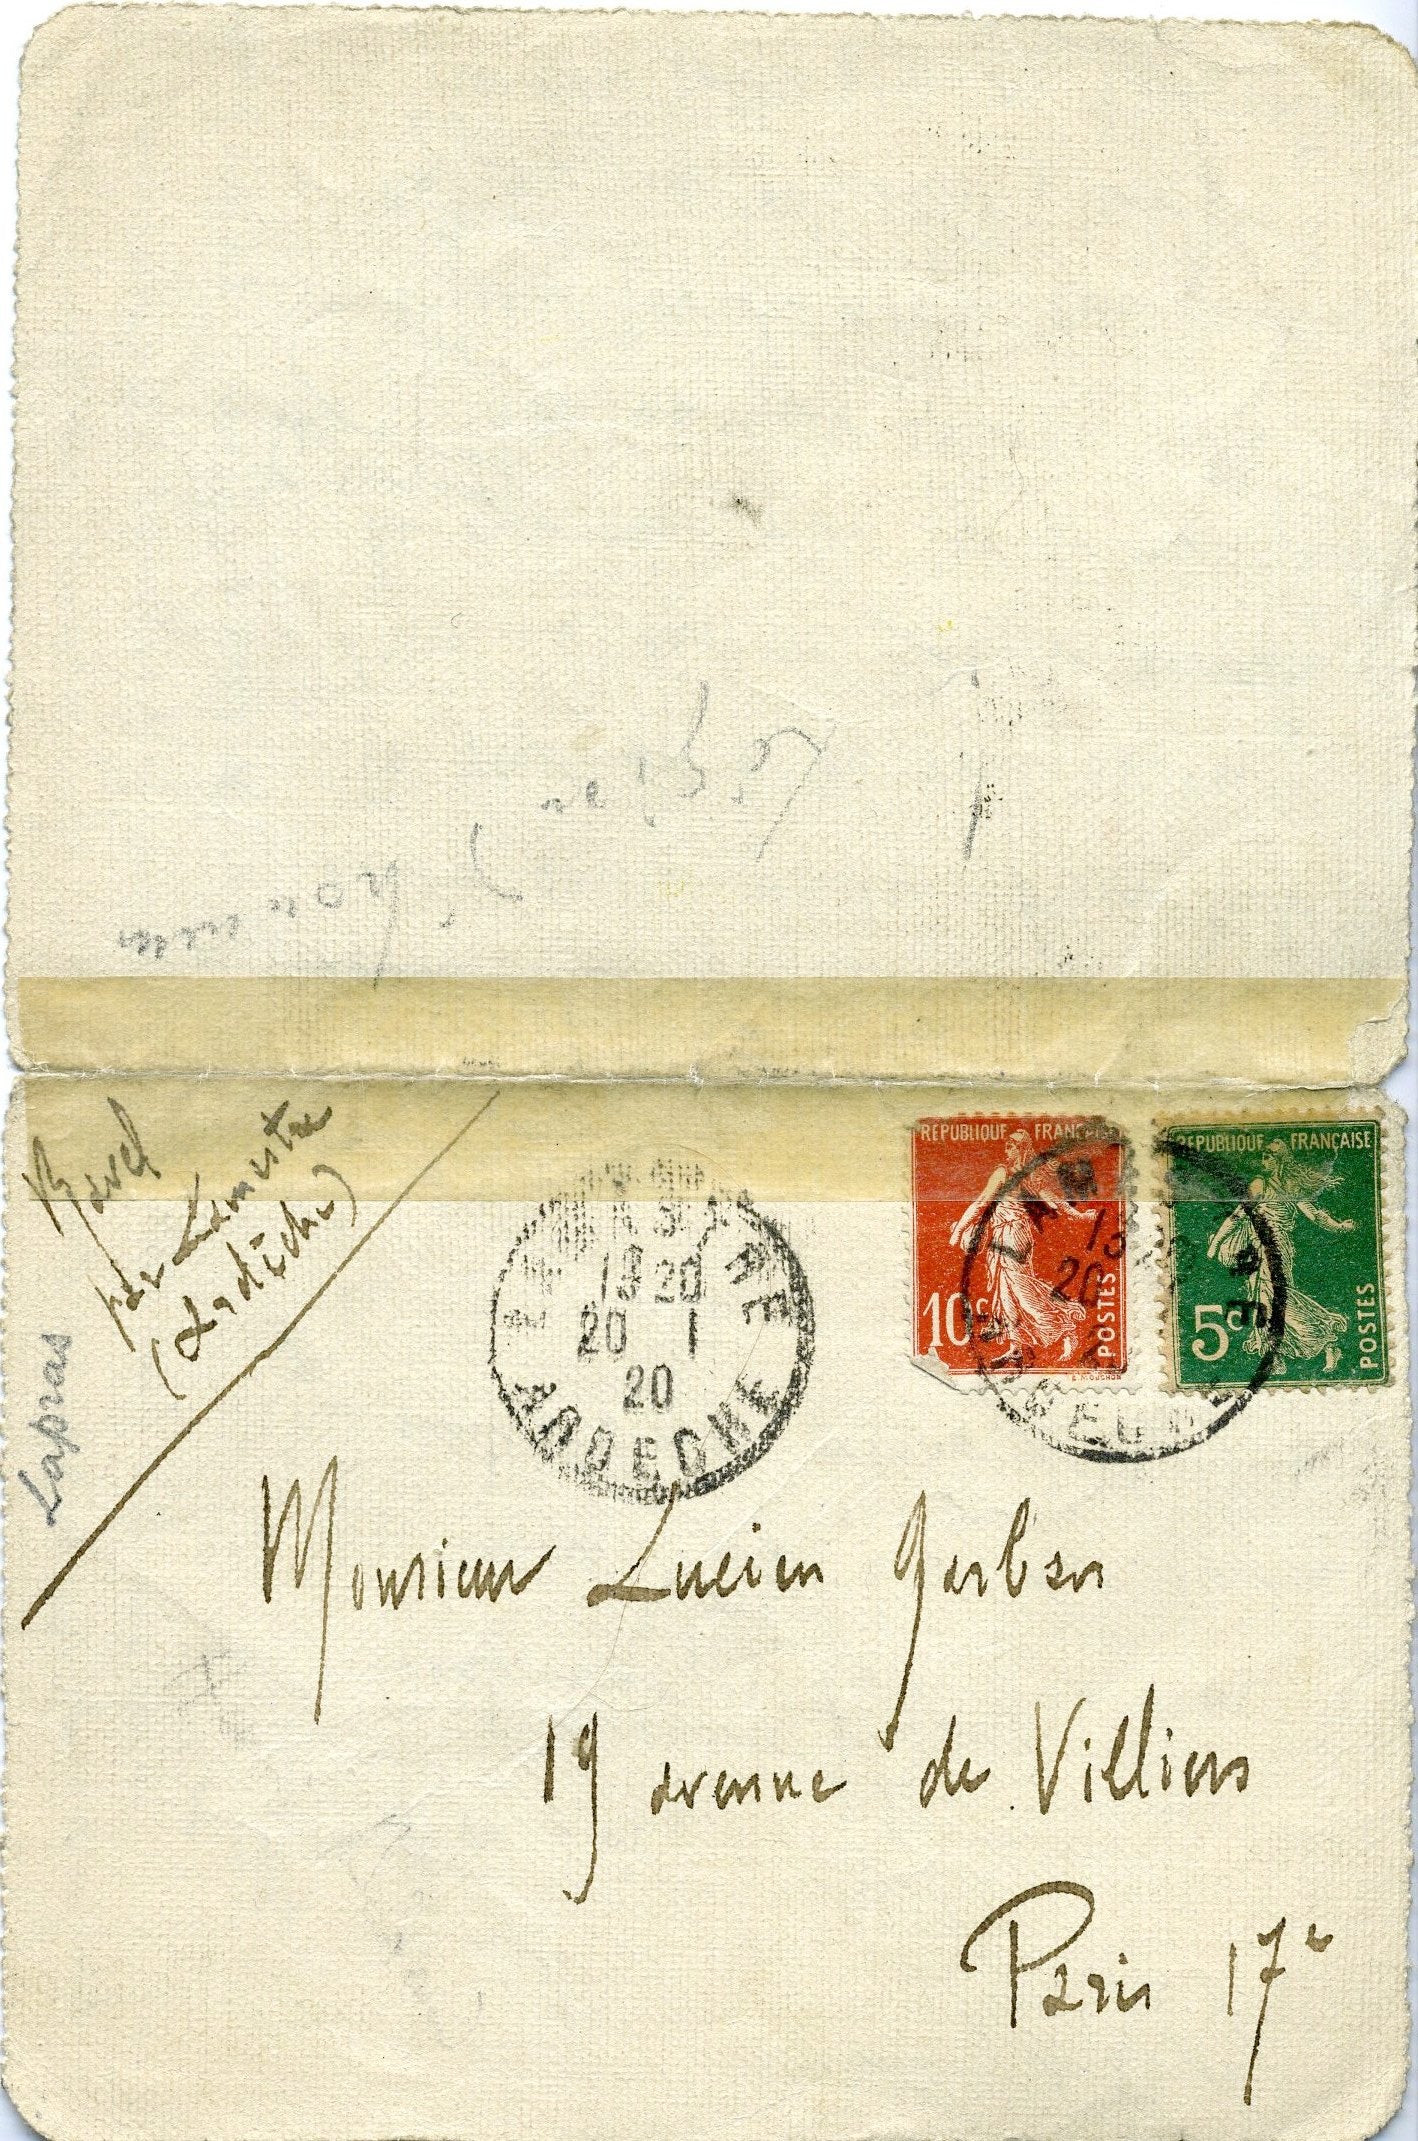 Ravel
par Lamastre
(Ardèche)
Lapras
LAMASTRE
13 20
20 1
20
ARDECHE
REPUBLIQUE FRANÇAISE
10c
POSTES
REPUBLIQUE FRANÇAISE
5c
POSTES
LAMASTRE
13
20
Monsieur Lucien Garban
19 avenue de Villiers
Paris 17e